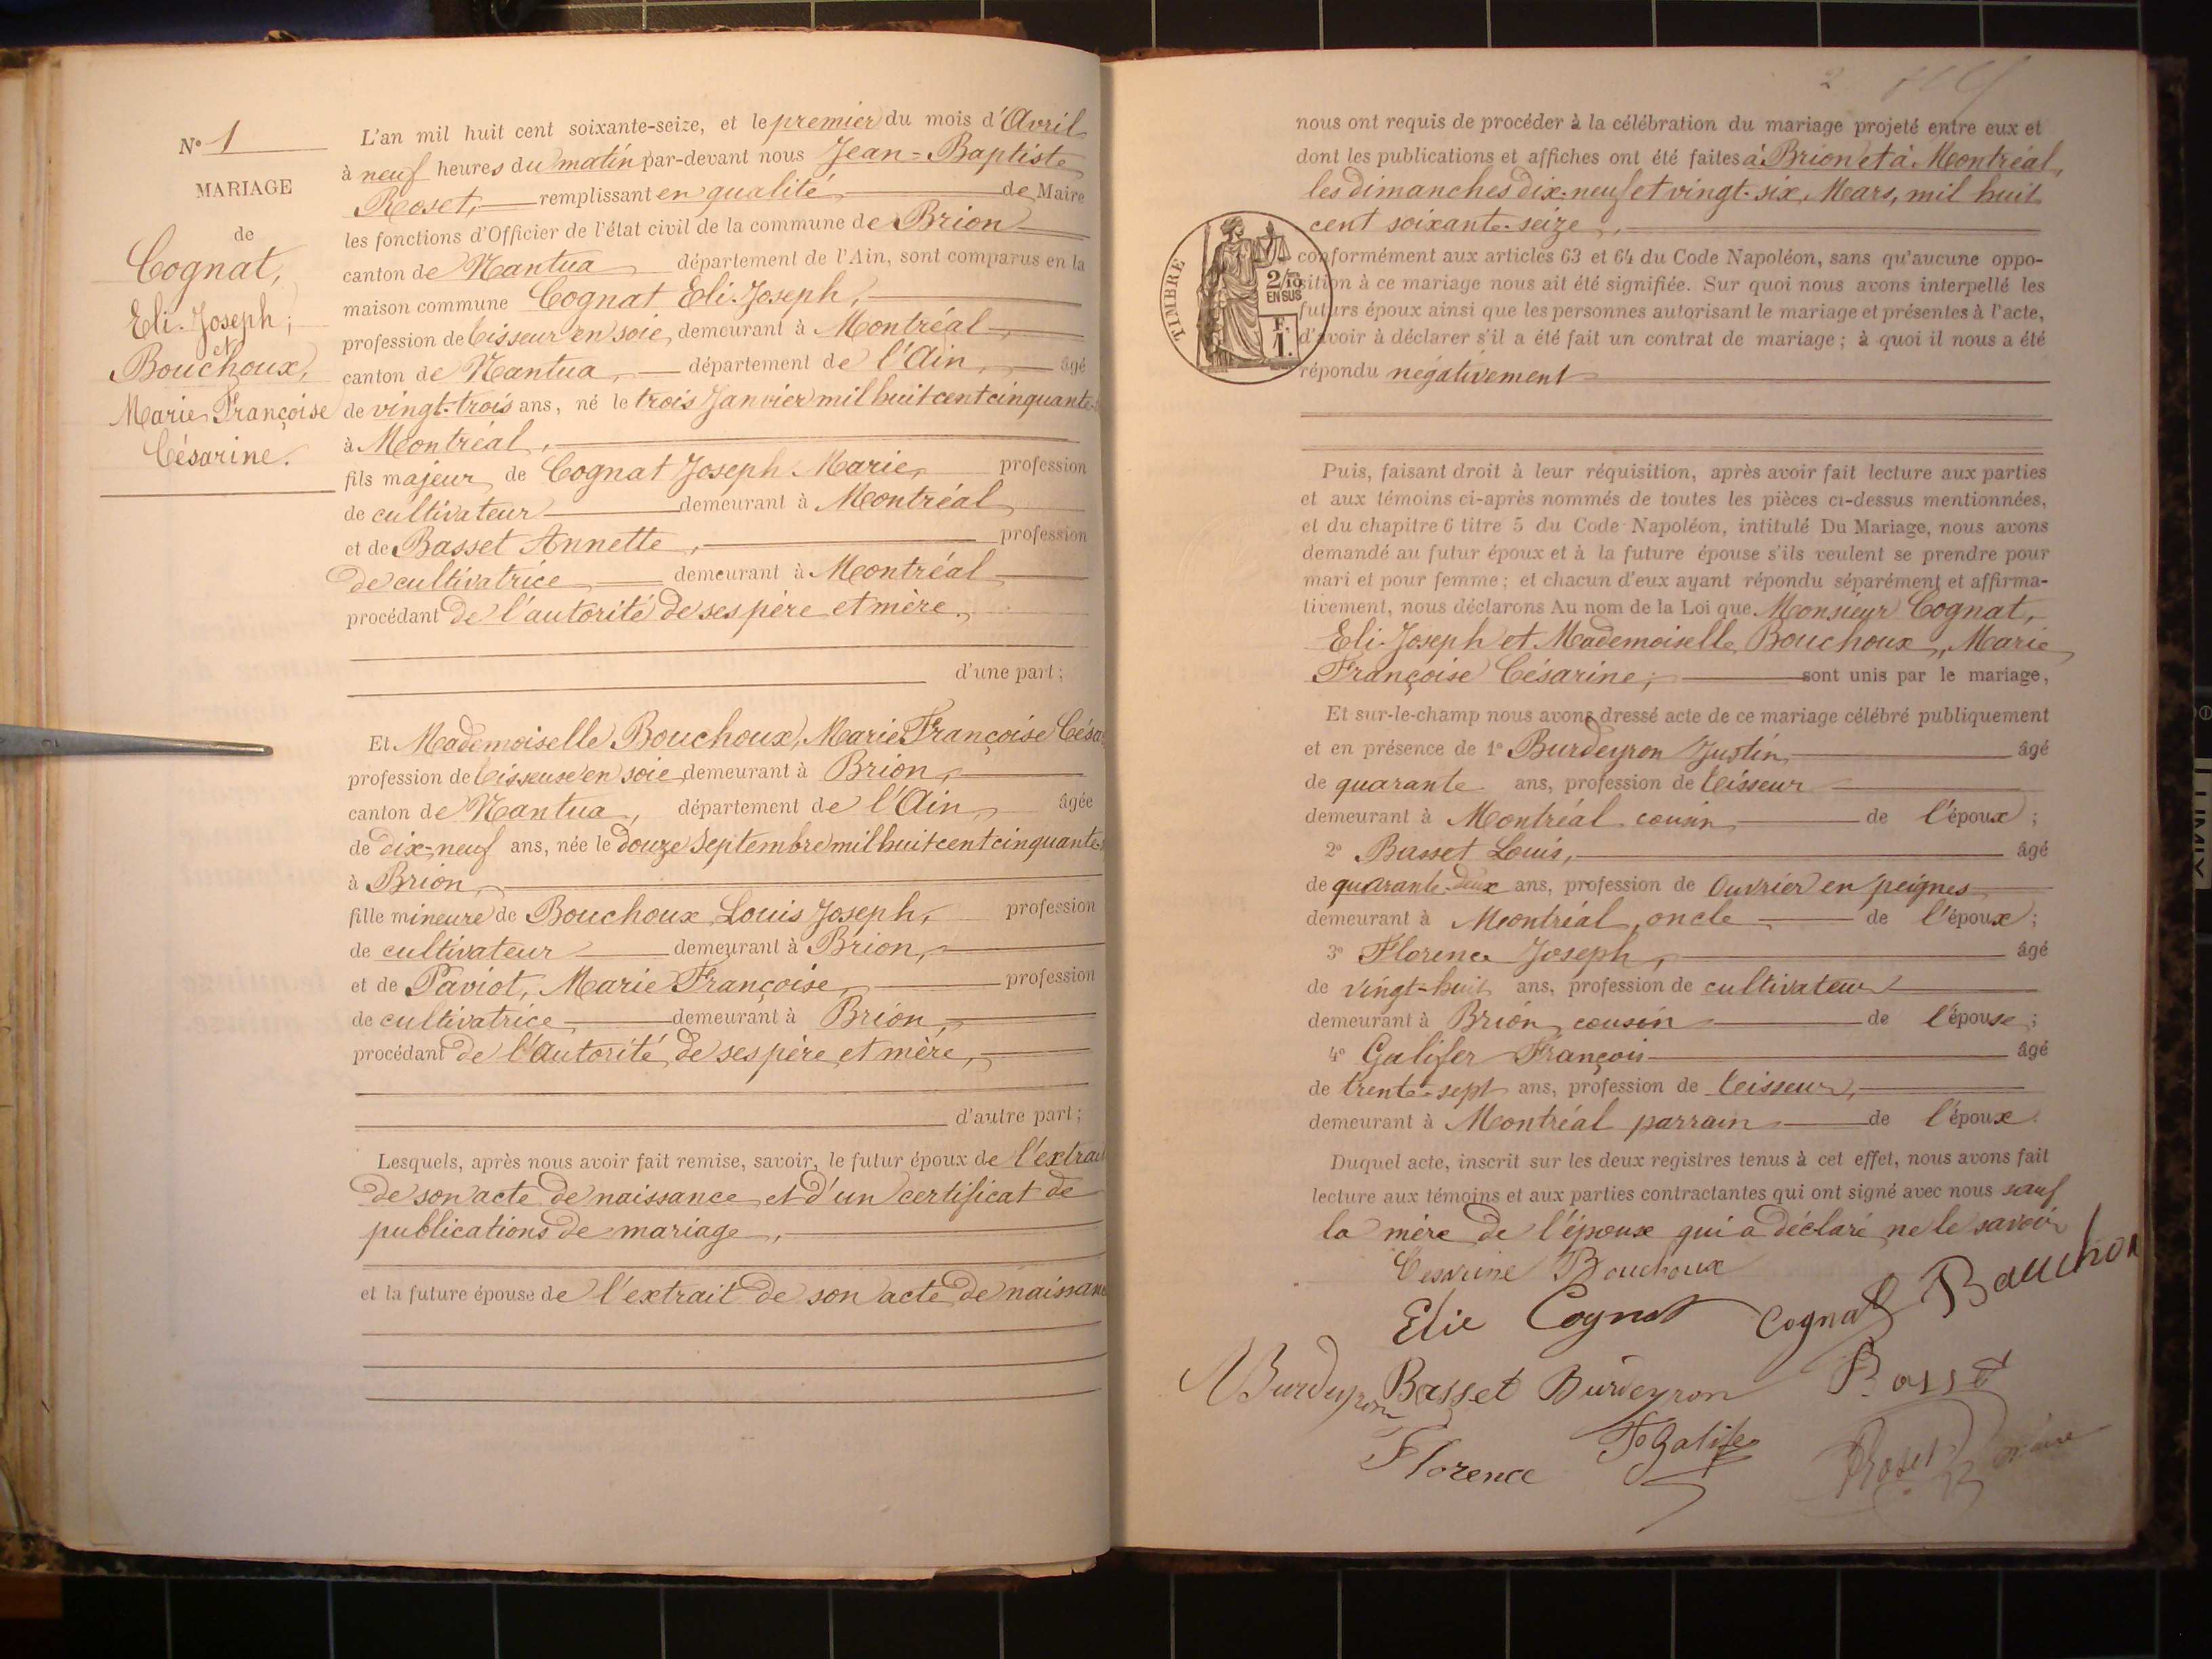 N° 1
MARIAGE
de
Cognat,
Eli-Joseph;
et
Bouchoux,
Marie Françoise
Césarine.
L'an mil huit cent soixante-seize, et le premier du mois d'Avril
à neuf heures du matin par-devant nous Jean-Baptiste
Roset, remplissant en qualité de Maire
les fonctions d'Officier de l'état civil de la commune de Brion
canton de Nantua département de l'Ain, sont comparus en la
maison commune Cognat Eli-Joseph,
profession de teisseur en soie, demeurant à Montréal,
canton de Nantua, département de l'Ain, âgé
de vingt-trois ans, né le trois Janvier mil huit cent cinquante-
à Montréal,
fils majeur de Cognat Joseph Marie, profession
de cultivateur demeurant à Montréal
et de Basset Annette, profession
de cultivatrice demeurant à Montréal
procédant de l'autorité de ses père et mère,
d'une part;
Et Mademoiselle Bouchoux, Marie Françoise Césa
profession de teisseuse en soie demeurant à Brion,
canton de Nantua, département de l'Ain, âgée
de dix-neuf ans, née le douze Septembre mil huit cent cinquante-
à Brion,
fille mineure de Bouchoux Louis Joseph, profession
de cultivateur demeurant à Brion,
et de Paviot, Marie Françoise, profession
de cultivatrice, demeurant à Brion,
procédant de l'autorité de ses père et mère,
d'autre part;
Lesquels, après nous avoir fait remise, savoir, le futur époux de l'extrait
de son acte de naissance et d'un certificat de
publications de mariage,
et la future épouse de l'extrait de son acte de naissan
2
nous ont requis de procéder à la célébration du mariage projeté entre eux et
dont les publications et affiches ont été faites à Brion et à Montréal,
les dimanches dix-neuf et vingt-six Mars, mil huit
cent soixante-seize,
TIMBRE
2/10
EN SUS
F.
1.
conformément aux articles 63 et 64 du Code Napoléon, sans qu'aucune oppo-
sition à ce mariage nous ait été signifiée. Sur quoi nous avons interpellé les
futurs époux ainsi que les personnes autorisant le mariage et présentes à l'acte,
d'avoir à déclarer s'il a été fait un contrat de mariage; à quoi il nous a été
répondu négativement
Puis, faisant droit à leur réquisition, après avoir fait lecture aux parties
et aux témoins ci-après nommés de toutes les pièces ci-dessus mentionnées,
et du chapitre 6 titre 5 du Code Napoléon, intitulé Du Mariage, nous avons
demandé au futur époux et à la future épouse s'ils veulent se prendre pour
mari et pour femme; et chacun d'eux ayant répondu séparément et affirma-
tivement, nous déclarons Au nom de la Loi que Monsieur Cognat,
Eli-Joseph et Mademoiselle Bouchoux, Marie
Françoise Césarine; sont unis par le mariage,
Et sur-le-champ nous avons dressé acte de ce mariage célébré publiquement
et en présence de 1° Burdeyron Justin, âgé
de quarante ans, profession de teisseur
demeurant à Montréal cousin de l'époux;
2° Basset Louis, âgé
de quarante-deux ans, profession de Ouvrier en peignes
demeurant à Montréal, oncle de l'époux;
3° Florence Joseph, âgé
de vingt-huit ans, profession de cultivateur
demeurant à Brion cousin de l'épouse;
4° Galifer François âgé
de trente-sept ans, profession de teisseur,
demeurant à Montréal parrain de l'époux.
Duquel acte, inscrit sur les deux registres tenus à cet effet, nous avons fait
lecture aux témoins et aux parties contractantes qui ont signé avec nous sauf
la mère de l'épouse qui a déclaré ne le savoir
Cesarine Bouchoux
Elie Cognat Cognat Bouchou
Burdeyron Basset Burdeyron Basset
Florence F. Galifer Roset maire